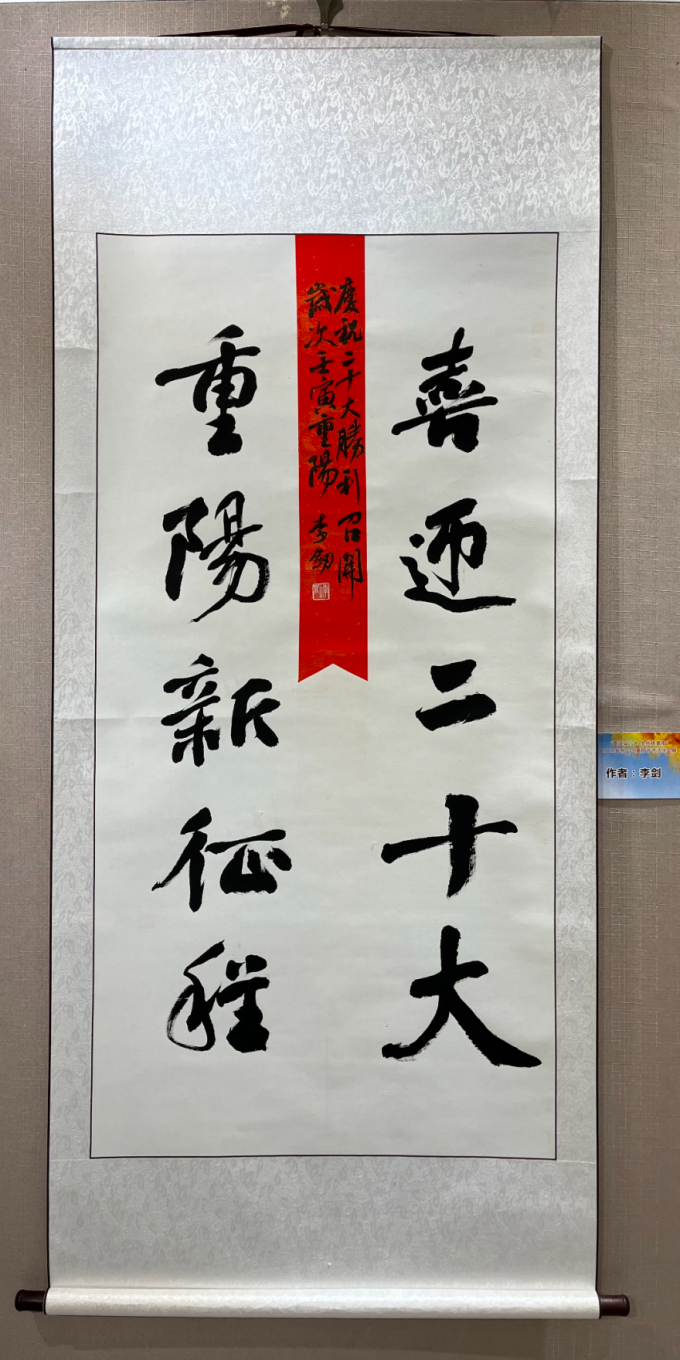 喜迎二十大
慶祝二十大勝利召開
歲次壬寅重陽 李劍
重陽新征程
作者：李剑